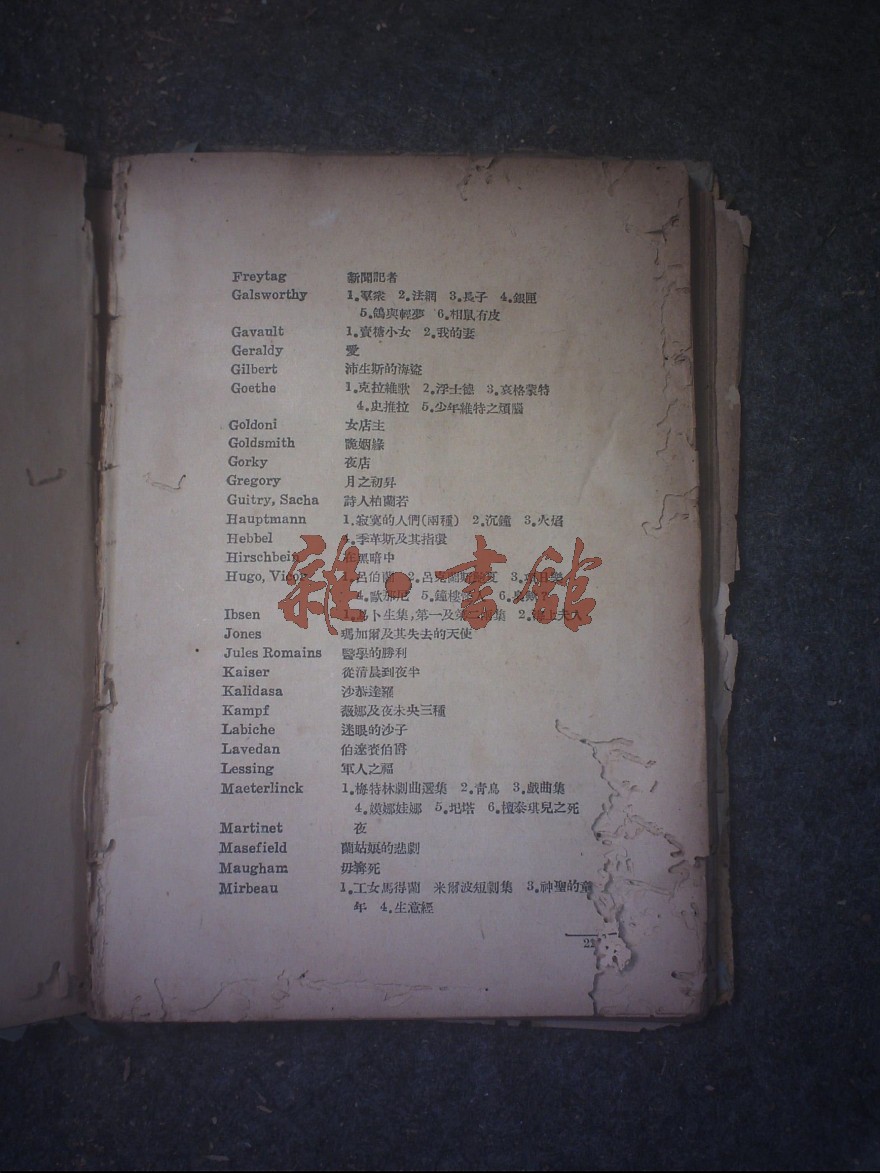 Freytag 新聞記者
Galsworthy 1.羣衆 2.法網 3.長子 4.銀匣
5.鴿與輕夢 6.相鼠有皮
Gavault 1.賣糖小女 2.我的妻
Geraldy 愛
Gilbert 沛生斯的海盜
Goethe 1.克拉維歌 2.浮士德 3.哀格蒙特
4.史推拉 5.少年維特之煩腦
Goldoni 女店主
Goldsmith 詭姻緣
Gorky 夜店
Gregory 月之初昇
Guitry, Sacha 詩人柏蘭若
Hauptmann 1.寂寞的人們(兩種) 2.沉鐘 3.火焰
Hebbel 季革斯及其指環
Hirschbein 在黑暗中
Hugo, 1.呂伯蘭 2.呂克蘭斯 3.
4.歐那尼 5.鐘樓 6.
Ibsen 1.易卜生集,第一及第二集 2.海上夫人
Jones 瑪加爾及其失去的天使
Jules Romains 醫學的勝利
Kaiser 從清晨到夜半
Kalidasa 沙恭達羅
Kampf 薇娜及夜未央三種
Labiche 迷眼的沙子
Lavedan 伯遼賚伯爵
Lessing 軍人之福
Maeterlinck 1.梅特林劇曲選集 2.青鳥 3.戲曲集
4.嫫娜娃娜 5.圯塔 6.檀泰琪兒之死
Martinet 夜
Masefield 蘭姑娘的悲劇
Maugham 毋寧死
Mirbeau 1.工女馬得蘭 米爾波短劇集 3.神聖的童
年 4.生意經
雜·書館